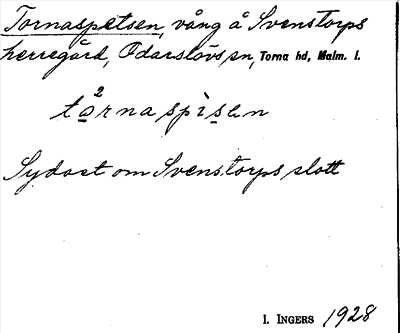 Tornaspetsen, vång å Svenstorps
herregård, Odarslövs sn, Torna hd, Malm. l.
Sydost om Svenstorps slott
I. INGERS 1928